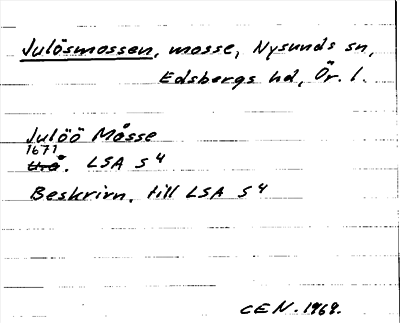 Julösmossen, mosse, Nysunds sn,
Edsbergs hd, Ör. l.
Julöö Måsse
1671
u.å. LSA S 4
Beskrivn. till LSA S 4
CEN. 1969.